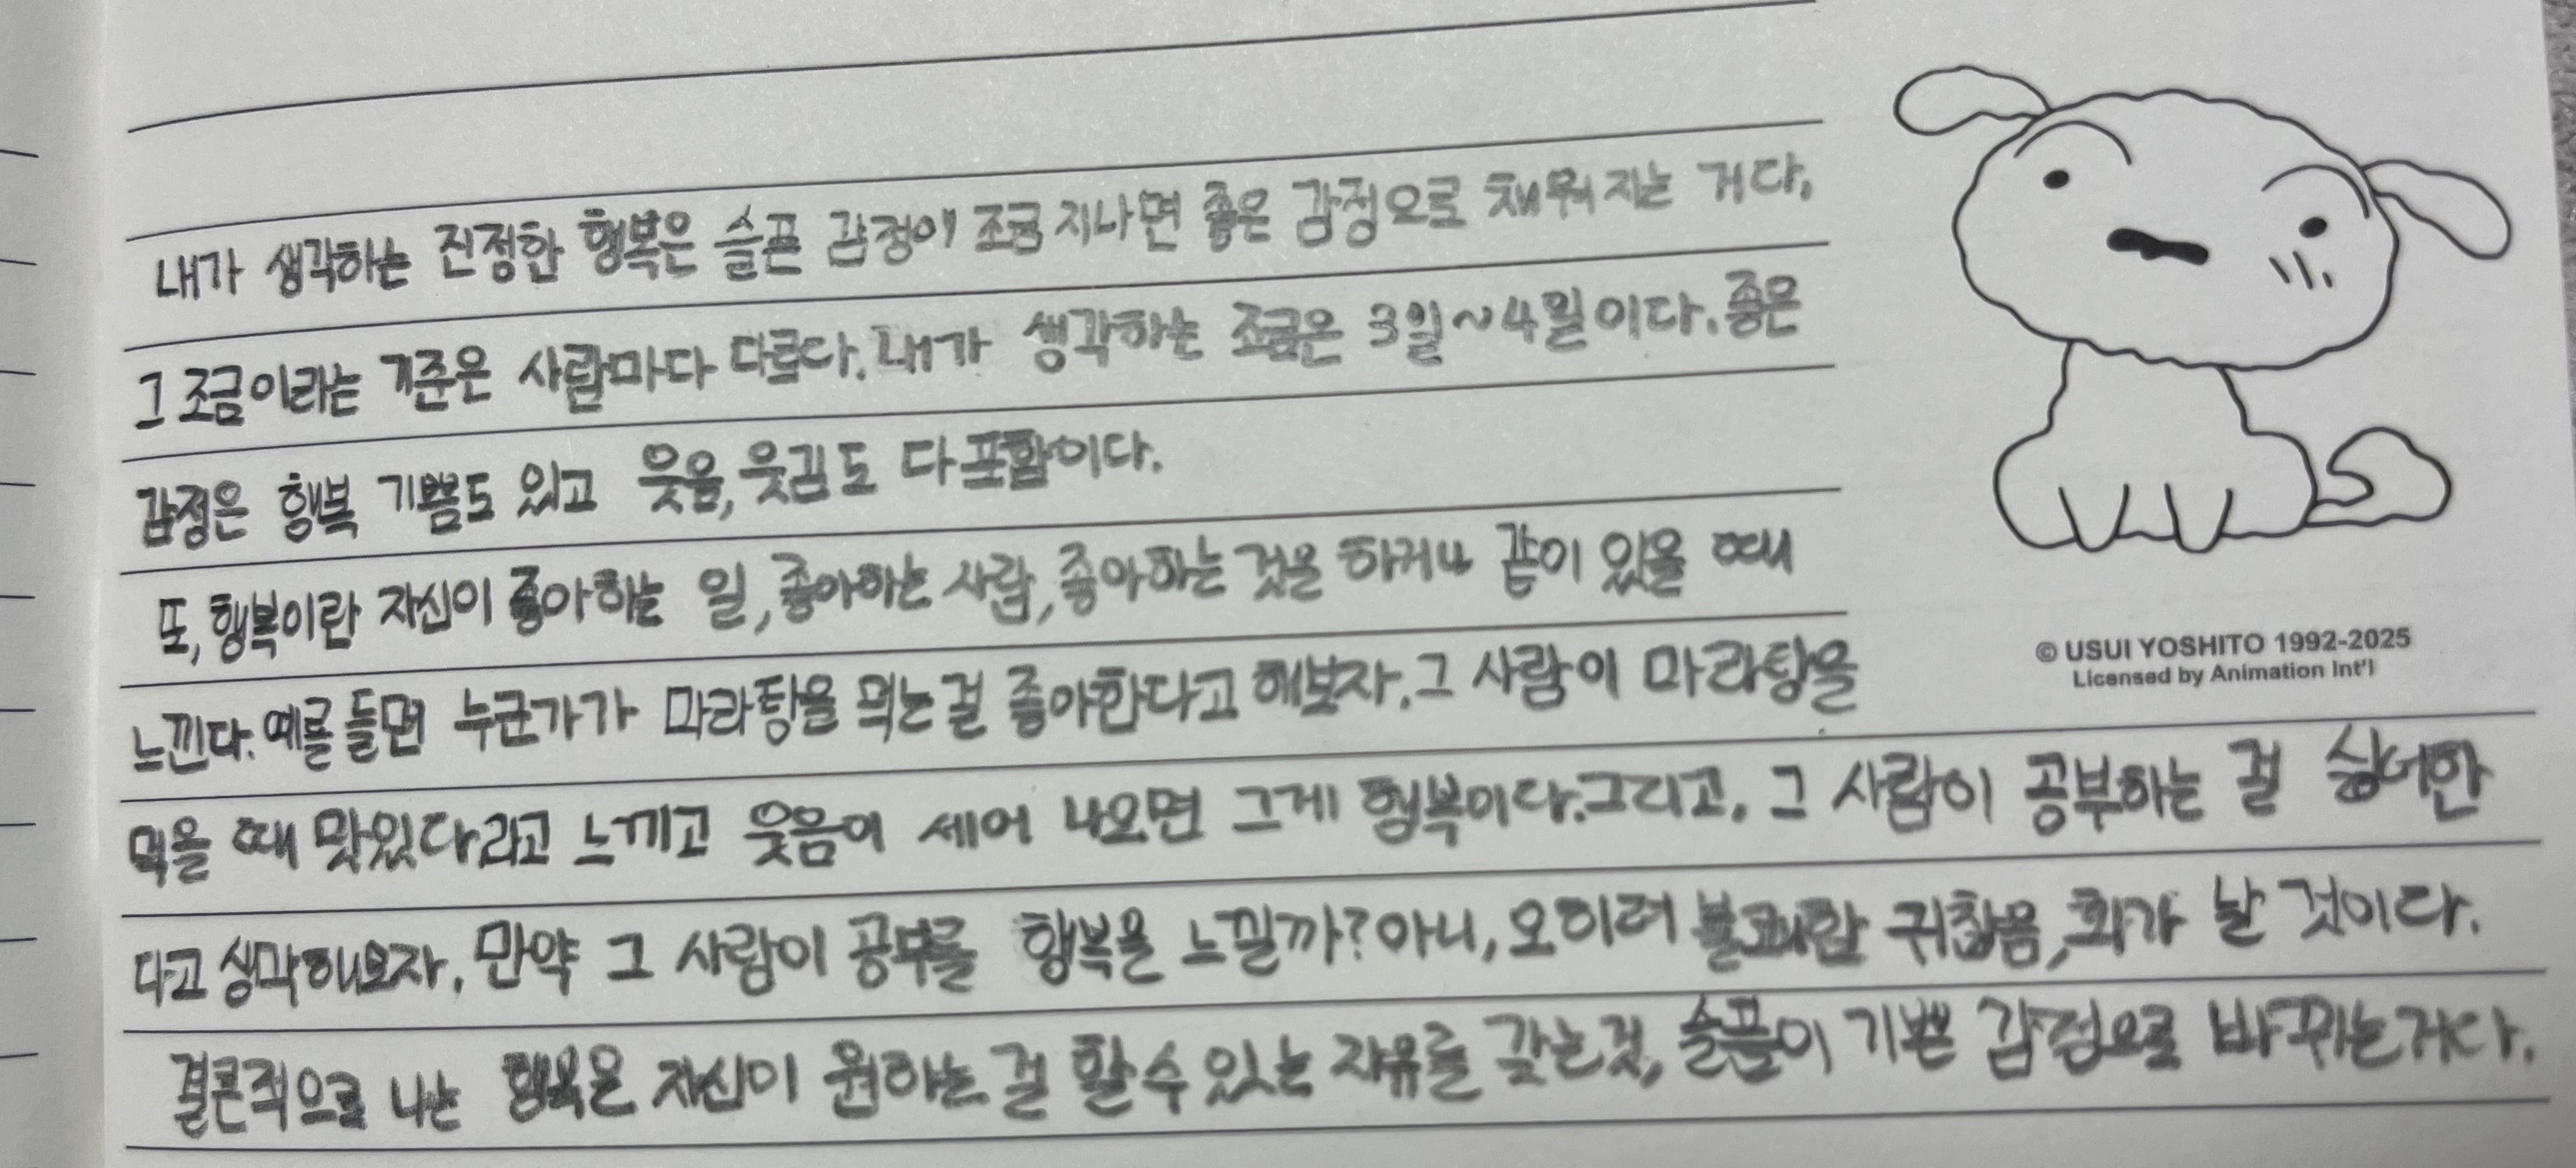 내가 생각하는 진정한 행복은 슬픈 감정이 조금 지나면 좋은 감정으로 채워지는 거다.
그 조금이라는 기준은 사람마다 다르다. 내가 생각하는 조금은 3일~4일이다. 좋은
감정은 행복 기쁨도 있고 웃음, 웃김도 다 포함이다.
또, 행복이란 자신이 좋아하는 일, 좋아하는 사람, 좋아하는 것을 하거나 같이 있을 때
느낀다. 예를 들면 누군가가 마라탕을 먹는 걸 좋아한다고 해보자. 그 사람이 마라탕을
먹을 때 맛있다라고 느끼고 웃음이 세어 나오면 그게 행복이다. 그리고, 그 사람이 공부하는 걸 싫어한
다고 생각해보자. 만약 그 사람이 공부를 행복을 느낄까? 아니, 오히려 불쾌함 귀찮음, 화가 날 것이다.
결론적으로 나는 행복은 자신이 원하는 걸 할 수 있는 자유를 갖는 것, 슬픔이 기쁜 감정으로 바뀌는거다.
© USUI YOSHITO 1992-2025
Licensed by Animation Int'l